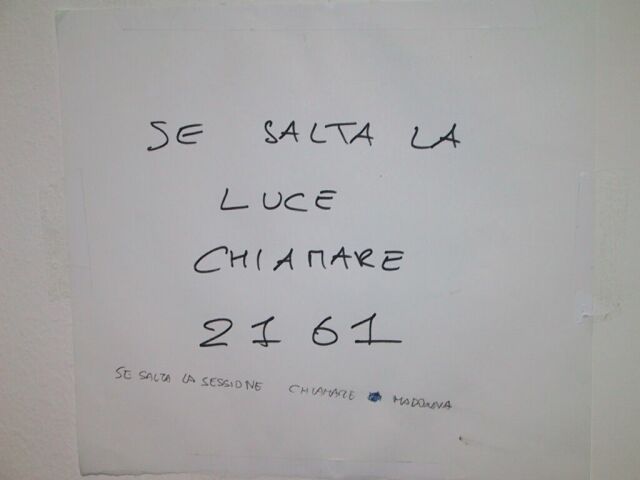 SE SALTA LA
LUCE
CHIAMARE
21 61
SE SALTA LA SESSIONE CHIAMARE MADONNA